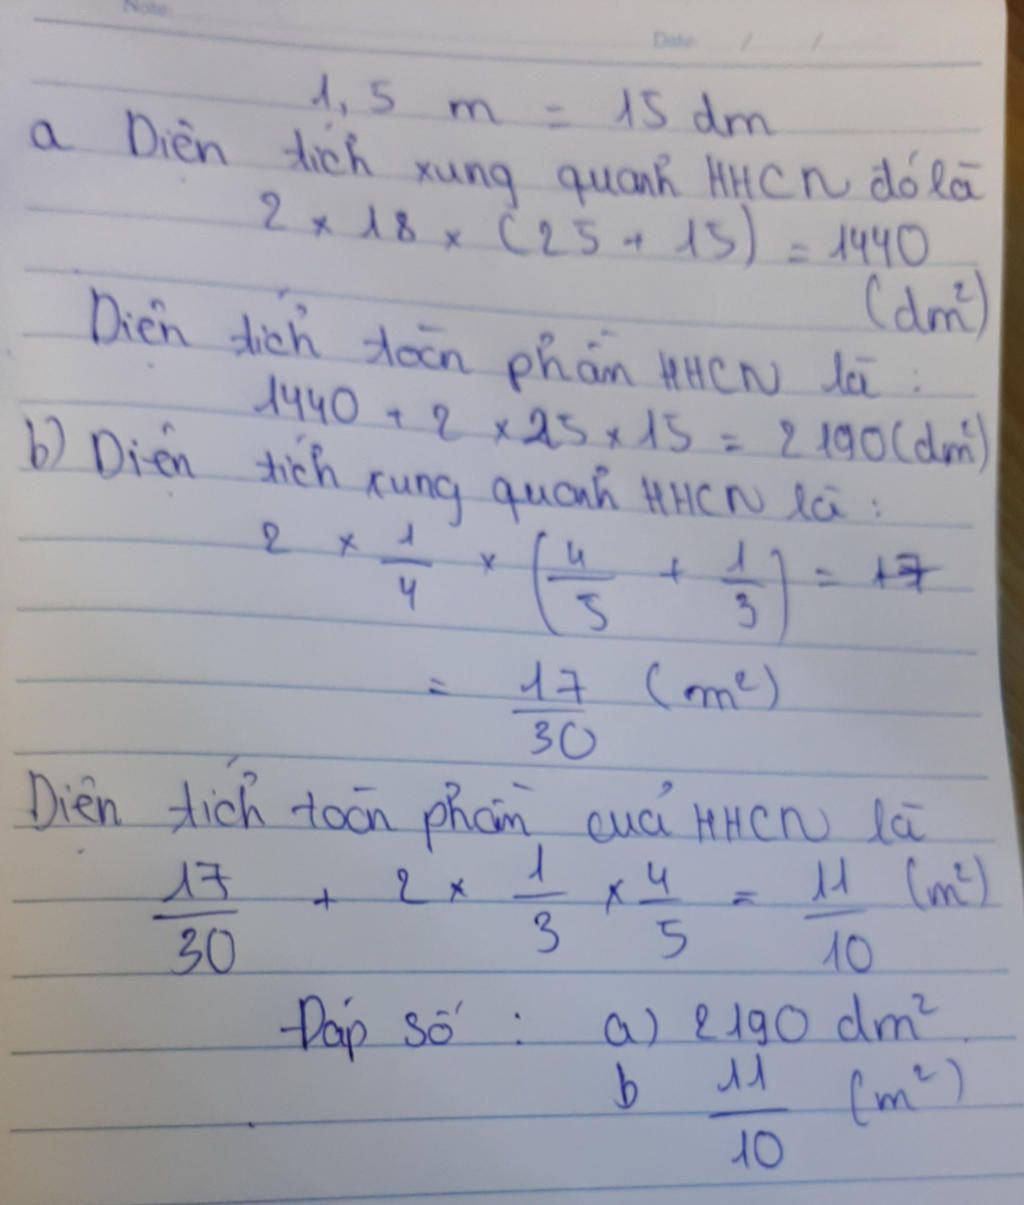 Note
Date / /
1,5 m = 15 dm
a Diện tích xung quanh HHCN đó là
2 × 18 × (25 + 15) = 1440
(dm²)
Diện tích toàn phần HHCN là :
1440 + 2 × 25 × 15 = 2190 (dm²)
b) Diện tích xung quanh HHCN là :
2 × 1/4 × (4/5 + 1/3) = 17
= 17/30 (m²)
Diện tích toàn phần của HHCN là
17/30 + 2 × 1/3 × 4/5 = 11/10 (m²)
Đáp số : a) 2190 dm²
b 11/10 (m²)